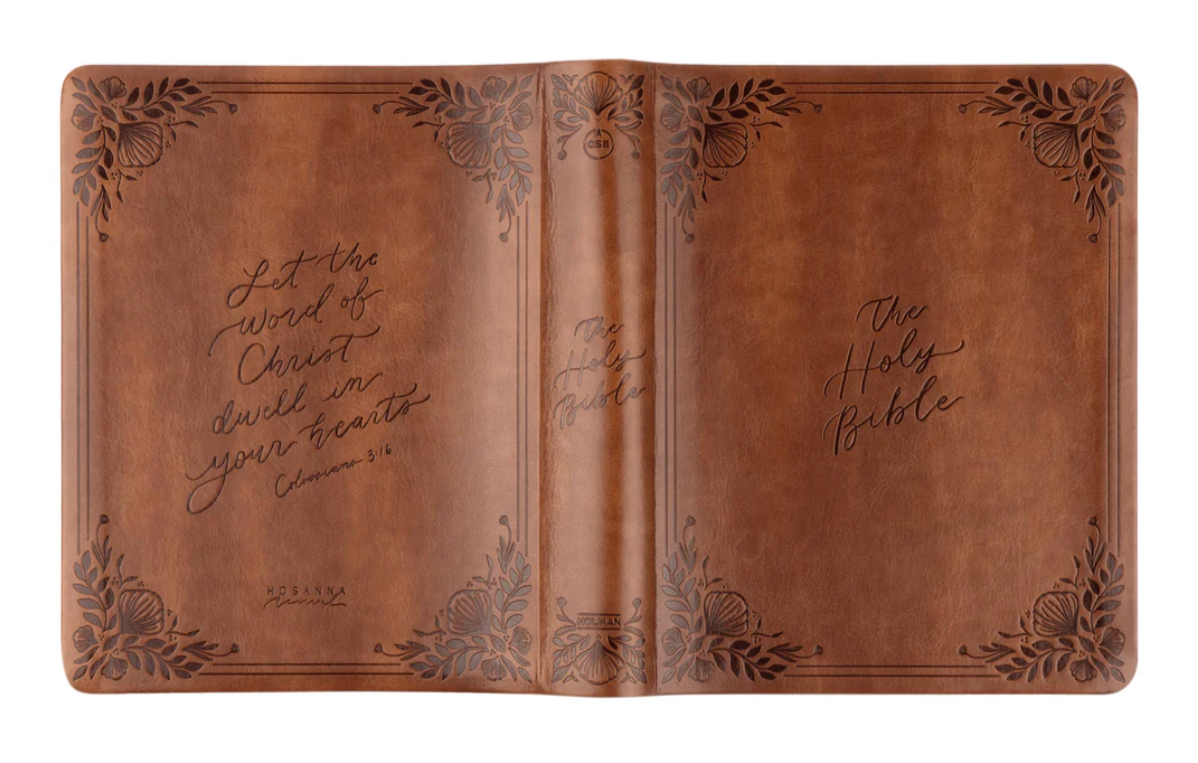 Let the
word of
Christ
dwell in
your hearts
Colossians 3:16
HOSANNA
Revival
CSB
The
Holy
Bible
HOLMAN
The
Holy
Bible